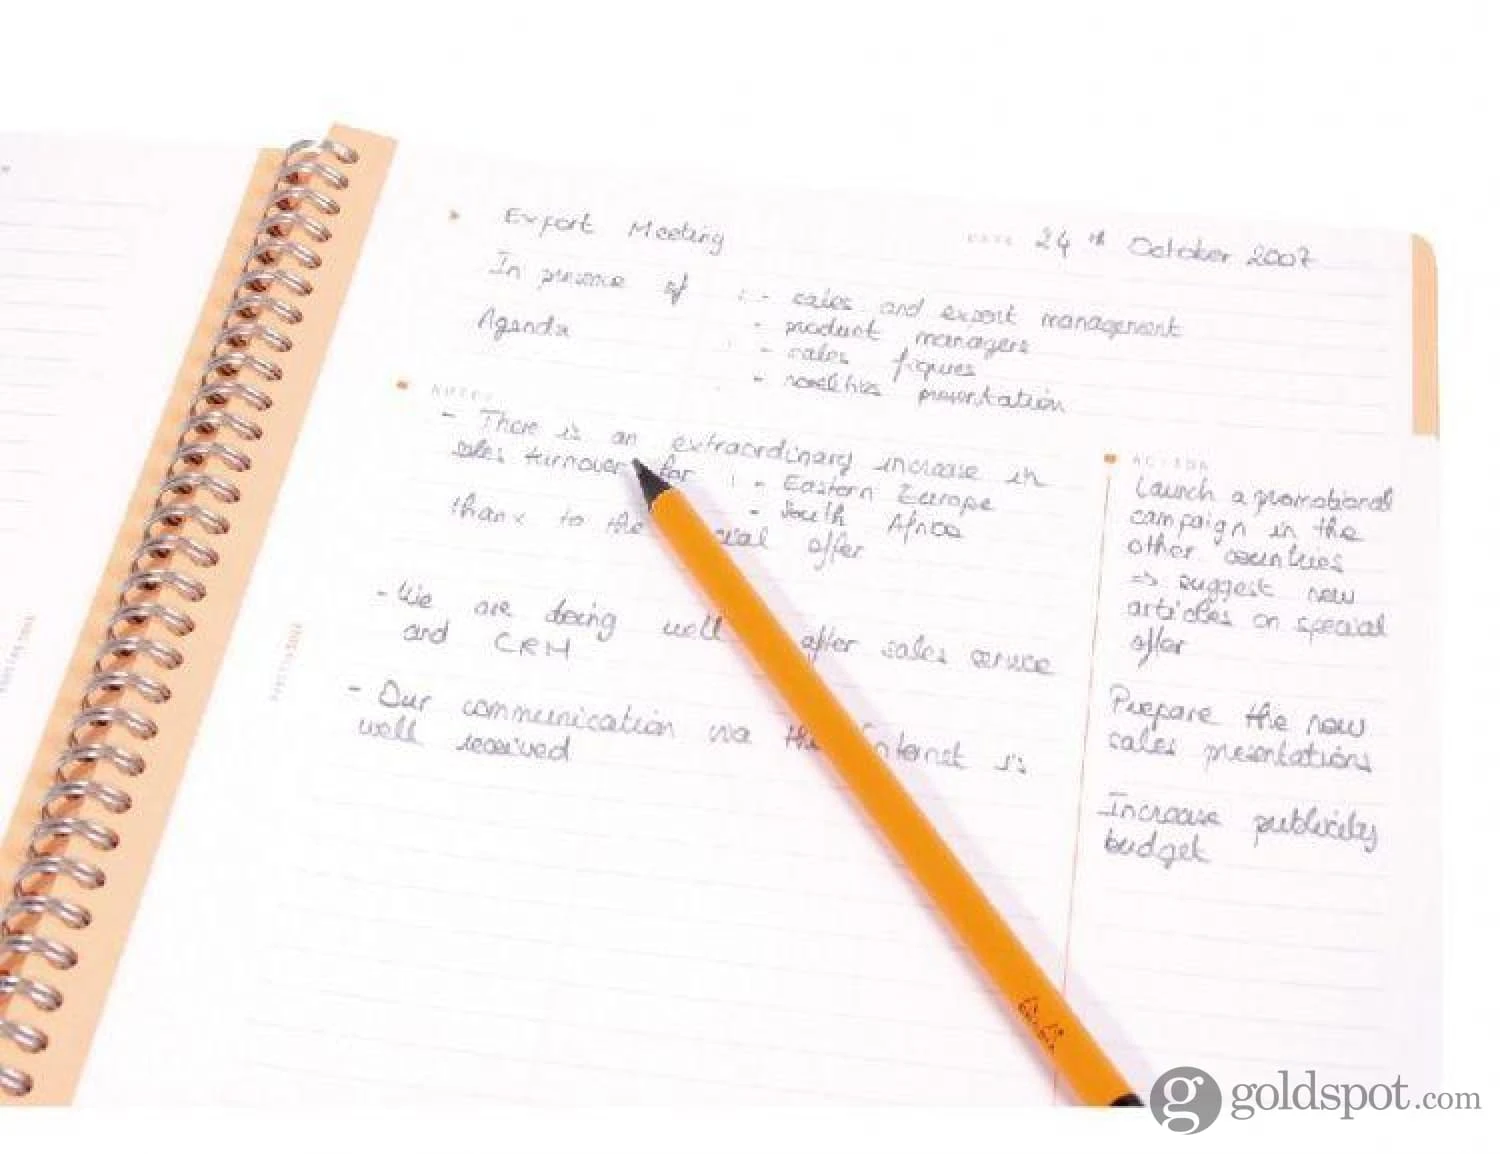 Export Meeting
DATE 24th October 2007
In presence of : - sales and export management
- product managers
Agenda : - sales figures
- novelties presentation
NOTES
- There is an extraordinary increase in
sales turnover for : - Eastern Europe
- South Africa
thanx to the offer
- We are doing well after sales service
and CRM
- Our communication via the Internet is
well received
ACTION
Launch a promotional
campaign in the
other countries
=> suggest new
articles on special
offer
Prepare the new
sales presentations
Increase publicity
budget
g goldspot.com